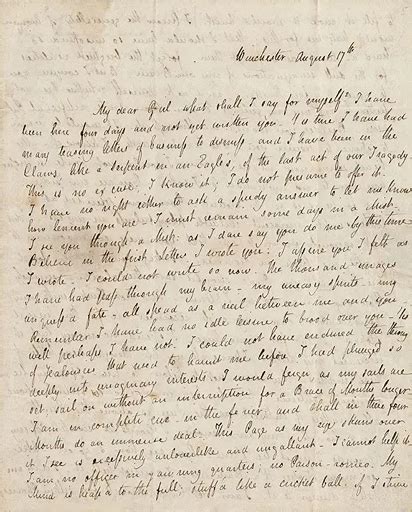 Winchester August 17th
My dear Girl - what shall I say for myself? I have
been here four days and not yet written you - 'tis true I have had
many teasing letters of business to dismiss - and I have been in the
Claws, like a Serpent in an Eagle's, of the last act of our Tragedy
This is no excuse; I know it; I do not presume to offer it.
I have no right either to ask a speedy answer to let me know
how lenient you are - I must remain some days in a Mist -
I see you through a Mist: as I dare say you do me by this time
Believe in the first Letters I wrote you: I assure you I felt as
I wrote - I could not write so now. The thousand images
I have had pass through my brain - my uneasy spirits - my
unguess'd fate - all spread as a veil between me and you -
Remember I have had no idle leisure to brood over you - 'tis
well perhaps I have not. I could not have endured the throng
of Jealousies that used to haunt me before I had plunged so
deeply into imaginary interests. I would feign, as my sails are
set, sail on without an interruption for a Brace of Months longer
I am in complete cue - in the fever; and shall in these four
Months do an immense deal. This Page as my eye skims over
it I see is excessively unloverlike and ungallant - I cannot help it
I am no officer in yawning quarters; no Parson-romeo. My
Mind is heap'd to the full; stuff'd like a cricket ball - if I strive